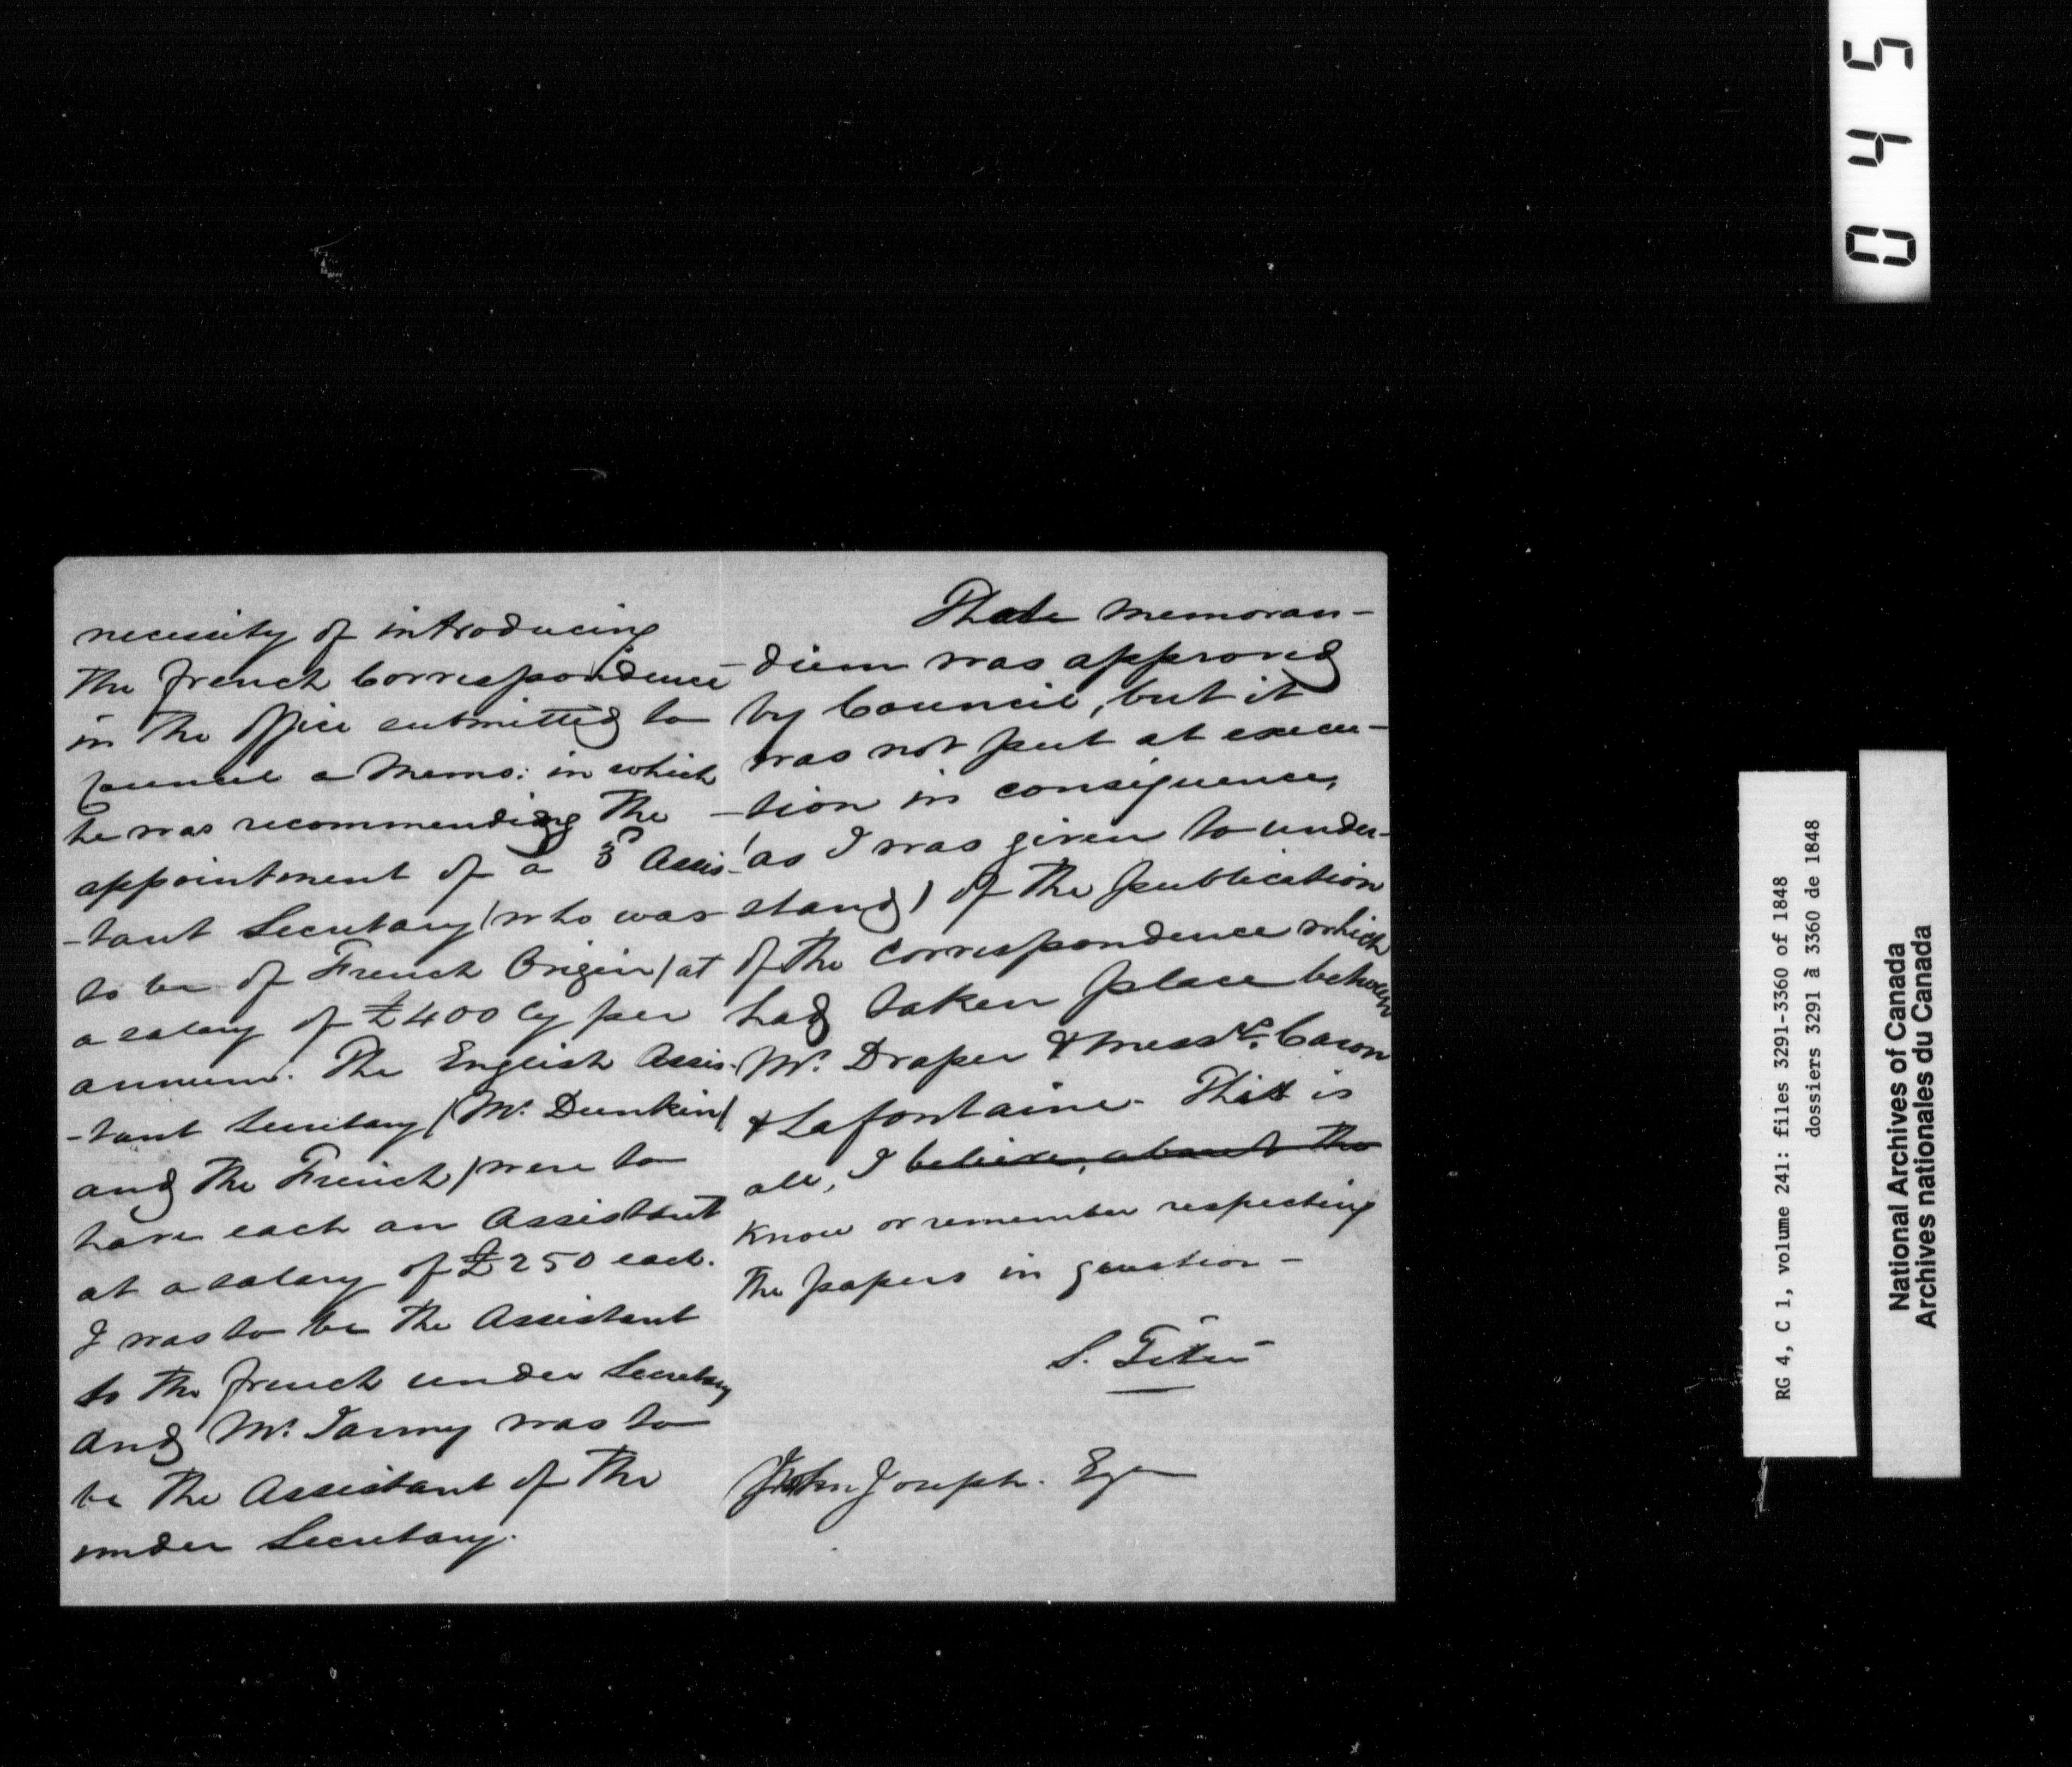 necessity of introducing
the french Correspondence
in the Office submitted to
Council a Memo: in which
he was recommending the
appointment of a 3d Assis-
-tant Secretary (who was
to be of French Origin) at
a salary of £400 Cy per
annum. The English Assis-
-tant Secretary (Mr. Dunkin)
and the French) were to
have each an Assistant
at a salary of £250 each.
I was to be the Assistant
to the french under Secretary
and Mr. was to
be the Assistant of the
under Secretary.
That memoran-
-dum was approved
by Council, but it
was not put at execu-
-tion in consequence,
(as I was given to under-
stand) of the publication
of the Correspondence which
had taken place between
Mr. Draper & Messrs. Caron
& Lafontaine. This is
all, I believe, about the
know or remember respecting
the papers in question -
S.
John Joseph. Eqr
0 4 5
RG 4, C 1, volume 241: files 3291-3360 of 1848
dossiers 3291 à 3360 de 1848
National Archives of Canada
Archives nationales du Canada